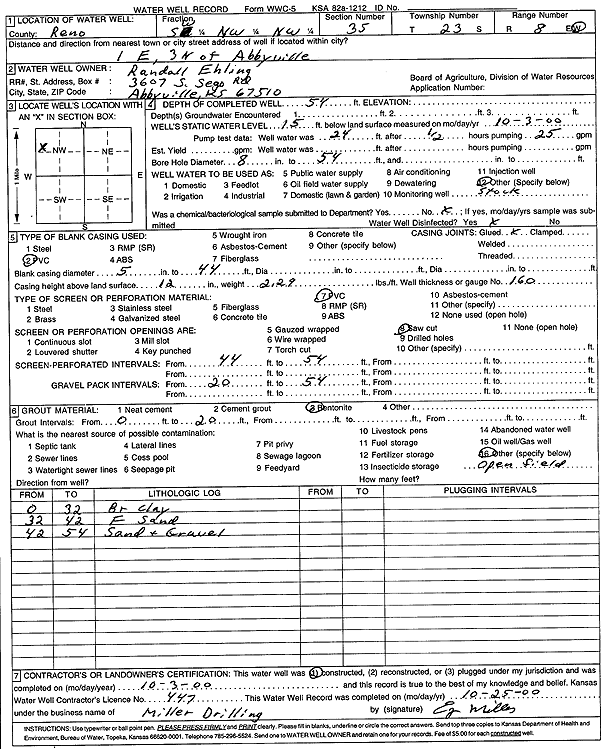 WATER WELL RECORD Form WWC-5 KSA 82a-1212 ID No.
1 LOCATION OF WATER WELL: Fraction Section Number Township Number Range Number
County: Reno SE ¼ NW ¼ NW ¼ 35 T 23 S R 8 E/W
Distance and direction from nearest town or city street address of well if located within city?
1 E, 3 N of Abbyville
2 WATER WELL OWNER: Randall Ehling
RR#, St. Address, Box # : 3607 S. Sego Rd Board of Agriculture, Division of Water Resources
City, State, ZIP Code : Abbyville, KS 67510 Application Number:
3 LOCATE WELL'S LOCATION WITH AN "X" IN SECTION BOX:
N
X NW NE
W E
SW SE
S
1 Mile
4 DEPTH OF COMPLETED WELL 54 ft. ELEVATION:
Depth(s) Groundwater Encountered 1. ft. 2. ft. 3. ft.
WELL'S STATIC WATER LEVEL 15 ft. below land surface measured on mo/day/yr 10-3-00
Pump test data: Well water was 24 ft. after 1/2 hours pumping 25 gpm
Est. Yield gpm: Well water was ft. after hours pumping gpm
Bore Hole Diameter 8 in. to 54 ft., and in. to ft.
WELL WATER TO BE USED AS: 5 Public water supply 8 Air conditioning 11 Injection well
1 Domestic 3 Feedlot 6 Oil field water supply 9 Dewatering 12 Other (Specify below)
2 Irrigation 4 Industrial 7 Domestic (lawn & garden) 10 Monitoring well Stock
Was a chemical/bacteriological sample submitted to Department? Yes No X ; If yes, mo/day/yrs sample was sub-
mitted Water Well Disinfected? Yes X No
5 TYPE OF BLANK CASING USED: 5 Wrought iron 8 Concrete tile CASING JOINTS: Glued X Clamped
1 Steel 3 RMP (SR) 6 Asbestos-Cement 9 Other (specify below) Welded
2 PVC 4 ABS 7 Fiberglass Threaded
Blank casing diameter 5 in. to 44 ft., Dia in. to ft., Dia in. to ft.
Casing height above land surface 12 in., weight 2.29 lbs./ft. Wall thickness or gauge No. 160
TYPE OF SCREEN OR PERFORATION MATERIAL: 7 PVC 10 Asbestos-cement
1 Steel 3 Stainless steel 5 Fiberglass 8 RMP (SR) 11 Other (specify)
2 Brass 4 Galvanized steel 6 Concrete tile 9 ABS 12 None used (open hole)
SCREEN OR PERFORATION OPENINGS ARE: 5 Gauzed wrapped 8 Saw cut 11 None (open hole)
1 Continuous slot 3 Mill slot 6 Wire wrapped 9 Drilled holes
2 Louvered shutter 4 Key punched 7 Torch cut 10 Other (specify) ft.
SCREEN-PERFORATED INTERVALS: From 44 ft. to 54 ft., From ft. to ft.
From ft. to ft., From ft. to ft.
GRAVEL PACK INTERVALS: From 20 ft. to 54 ft., From ft. to ft.
From ft. to ft., From ft. to ft.
6 GROUT MATERIAL: 1 Neat cement 2 Cement grout 3 Bentonite 4 Other
Grout Intervals: From 0 ft. to 20 ft., From ft. to ft., From ft. to ft.
What is the nearest source of possible contamination: 10 Livestock pens 14 Abandoned water well
1 Septic tank 4 Lateral lines 7 Pit privy 11 Fuel storage 15 Oil well/Gas well
2 Sewer lines 5 Cess pool 8 Sewage lagoon 12 Fertilizer storage 16 Other (specify below)
3 Watertight sewer lines 6 Seepage pit 9 Feedyard 13 Insecticide storage Open field
Direction from well? How many feet?
FROM TO LITHOLOGIC LOG FROM TO PLUGGING INTERVALS
0 32 Br Clay
32 42 F Sand
42 54 Sand + Gravel
7 CONTRACTOR'S OR LANDOWNER'S CERTIFICATION: This water well was (1) constructed, (2) reconstructed, or (3) plugged under my jurisdiction and was
completed on (mo/day/year) 10-3-00 and this record is true to the best of my knowledge and belief. Kansas
Water Well Contractor's Licence No. 447 This Water Well Record was completed on (mo/day/yr) 10-25-00
under the business name of Miller Drilling by (signature)
INSTRUCTIONS: Use typewriter or ball point pen. PLEASE PRESS FIRMLY and PRINT clearly. Please fill in blanks, underline or circle the correct answers. Send top three copies to Kansas Department of Health and
Environment, Bureau of Water, Topeka, Kansas 66620-0001. Telephone 785-296-5524. Send one to WATER WELL OWNER and retain one for your records. Fee of $5.00 for each constructed well.